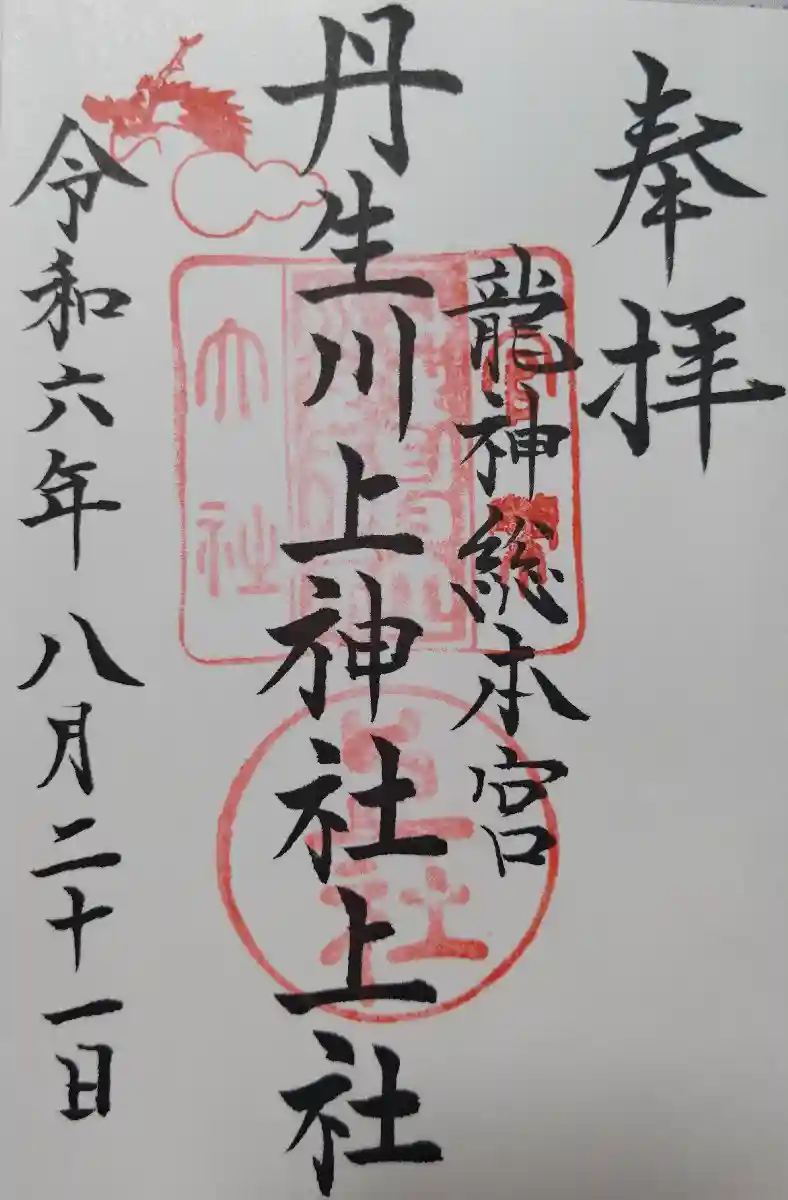 奉拝
龍神総本宮
丹生川上神社上社
令和六年 八月二十一日
大社
上社